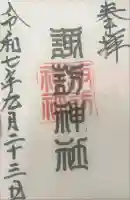 奉拝
諏訪神社
令和七年九月二十三日